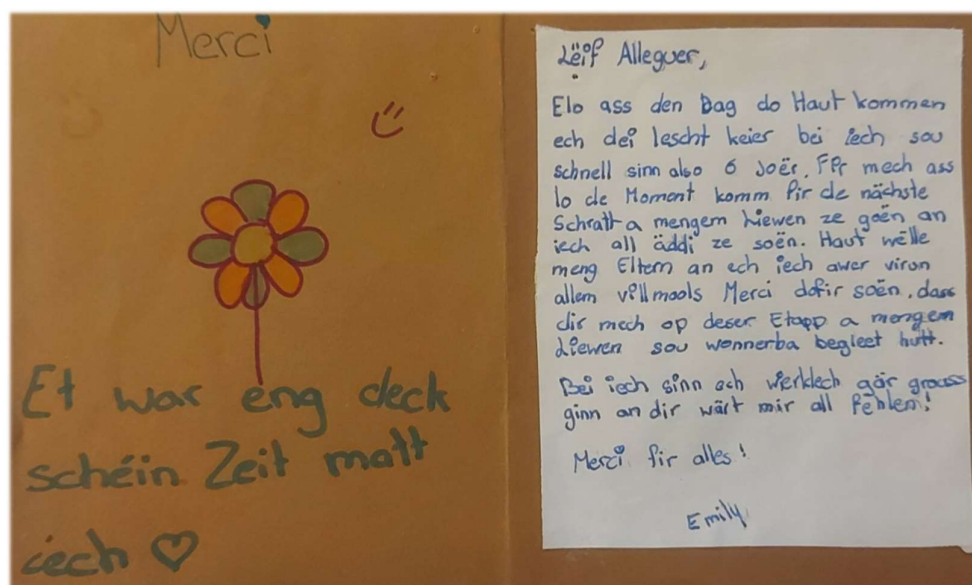 Merci
Et war eng deck
schéin Zeit matt
iech
Lëif Alleguer,
Elo ass den Dag do Haut kommen
ech déi lescht keier bei iech sou
schnell sinn also 6 Joër. Fir mech ass
lo de Moment komm fir de nächste
Schratt a mengem Liewen ze goën an
iech all äddi ze soën. Haut wëlle
meng Eltern an ech iech awer virun
allem villmools Merci dofir soën, dass
dir mech op deser Etapp a mengem
Liewen sou wonnerba begleet hutt.
Bei iech sinn ech wierklech gär grouss
ginn an dir wärt mir all fehlen!
Merci fir alles!
Emily